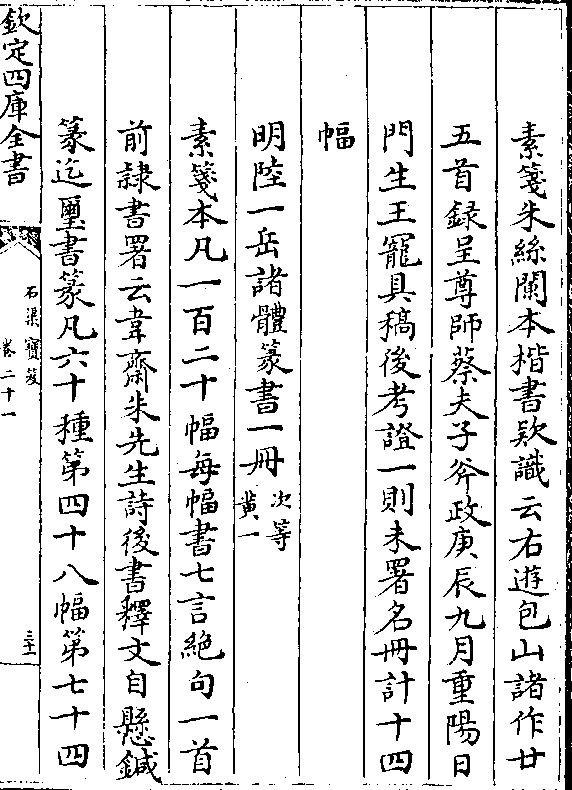 素箋朱絲闌本楷書欵識云右遊包山諸作廿
五首録呈尊師蔡夫子斧政庚辰九月重陽日
門生王寵具稿後考證一則未署名冊計十四
幅
明陸一岳諸體篆書一冊 次等黃一
素箋本凡一百二十幅每幅書七言絶句一首
前隷書署云韋齋朱先生詩後書釋文自懸鍼
篆迄璽書篆凡六十種第四十八幅第七十四
欽定四庫全書
石渠寶笈
卷二十一
三十一